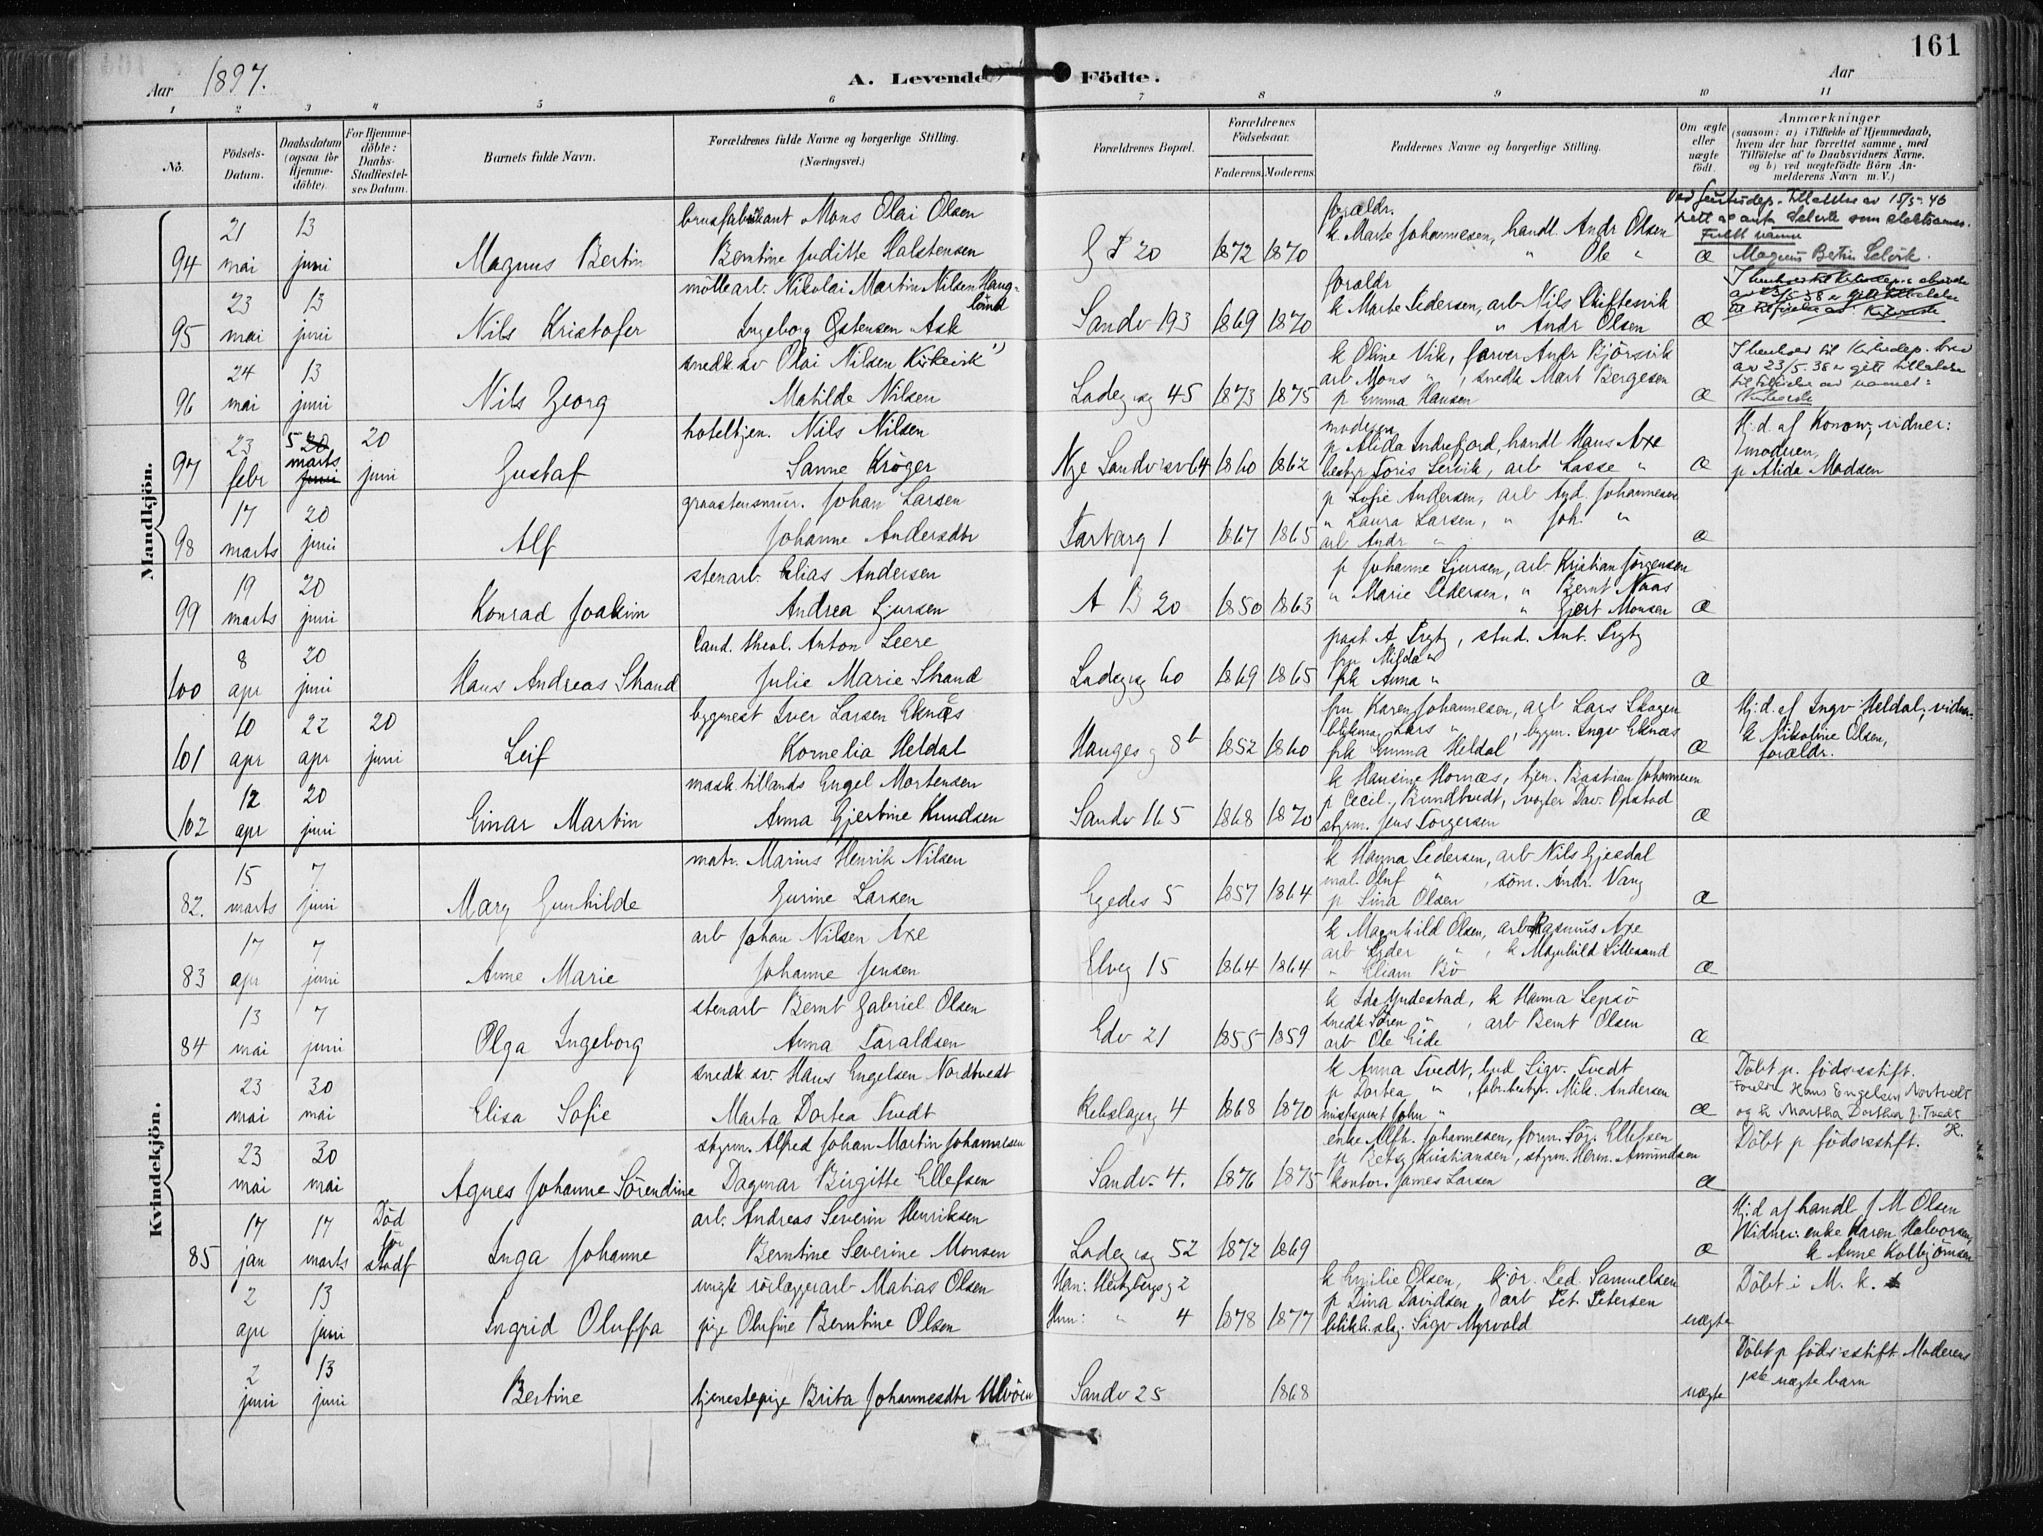 161
Aar 1897.
A. Levende Födte.
Aar
1 2 3 4 5 6 7 8 9 10 11
No.
Födsels-Datum.
Daabsdatum (ogsaa for Hjemme-döbte).
For Hjemme-döbte: Daabs-Stadfæstel-ses Datum.
Barnets fulde Navn.
Forældrenes fulde Navne og borgerlige Stilling. (Næringsvei.)
Forældrenes Bopæl.
Forældrenes Födselsaar.
Faderens. Moderens.
Faddernes Navne og borgerlige Stilling.
Om ægte eller uægte födt.
Anmærkninger (saasom: a) i Tilfælde af Hjemmedaab, hvem der har forrettet samme, med Tilföielse af to Daabsvidners Navne. og b) ved uægtefödte Börn An-melderens Navn m. V.)
Mandkjön.
94 21 mai 13 juni Magnus Bertin
brusfabrikant Mons Olai Olsen
Berntine Juditte Halstensen
20 1872 1870
forældr.
k Marte Johannesen, handl. Andr Olsen
" Ole "
æ
Fullt navn
Magnus Bertin Selvik.
95 23 mai 13 juni Nils Kristofer
möllearb. Nikolai Martin Nilsen Haug-
land
Ingeborg Östensen Ask
Sandv 193 1869 1870
forældr
k Marte Pedersen, arb Nils Skiftesvik
" Andr Olsen
æ
96 24 mai 13 juni Nils Georg
snedk sv Olai Nilsen Kirkevik
Matilde Nilsen
Ladeg og 45 1873 1875
k Oline Vik, farver Andr Björsvik
arb Mons " , snedk Mart Bergesen
p Emma Hansen
æ
I henhold til Kirkedep. brev
av 23/5 38 er gitt tillatelse
til tilföielse av navnet:
97 23 febr 5 20 marts juni 20 juni Gustaf
hoteltjen. Nils Nilsen
Sanne Kröger
Nye Sandviksv 64 1860 1862
moderen
p Alida Indrefjord, handl Hans Axe
bestyr Joris Lervik, arb Lasse "
æ
Hj.d. af Konow, vidner:
moderen,
p Alida Madsen
98 17 marts 20 juni Alf
graastensmur. Johan Larsen
Johanne Andersdtr
Tartarg 1 1867 1865
p Sofie Andersen, arb And. Johannesen
" Laura Larsen, " Joh. "
arb Andr "
æ
99 19 marts 20 juni Konrad Joakim
stenarb. Elias Andersen
Andrea Sjursen
A B 20 1850 1863
p Johanne Sjursen, arb. Kristian Jörgensen
" Marie Pedersen, " Bernt Naas
" Gjert Monsen
æ
100 8 apr 20 juni Hans Andreas Strand
Cand. theol. Anton Seere
Julie Marie Strand
Ladeg og 60 1869 1865
past A Prytz, stud. Ant. Prytz
fru Milda "
frk Anna "
æ
101 10 apr 22 apr 20 juni Leif
bygmest Iver Larsen Eknæs
Kornelia Heldal
Hauges g 8b 1852 1860
fru Karen Johannesen, arb Lars Skogen
blikmag Lars " , bygm. Ingv Eknæs
frk Emma Heldal
æ
Hj.d. af Ingv Heldal, vidn:
k Nikoline Olsen,
forældr.
102 12 apr 20 juni Einar Martin
mask. tillands Engel Mortensen
Anna Gjertine Knudsen
Sandv 165 1868 1870
k Hansine Hornæs, tjen. Bastian Johannesen
p Cecil. Bundtvedt, vogter Dav. Opstad
styrm. Jens Torgersen
æ
Kvindekjön.
82. 15 marts 7 juni Mary Gunhilde
matr. Marius Henrik Nilsen
Gurine Larsen
Egedes 5 1857 1864
k Hanna Pedersen, arb Nils Gjesdal
mal. Oluf " , söm. Andr. Vang
p Lina Olsen
æ
83 17 apr 7 juni Anne Marie
arb Johan Nilsen Axe
Johanne Jensen
Elveg 15 1864 1864
k Magnhild Olsen, arb Rasmus Axe
arb Peder " , k Magnhild Lillesand
" Eliam Bö
æ
84 13 mai 7 juni Olga Ingeborg
stenarb Bernt Gabriel Olsen
Anna Taraldsen
Edv 21 1855 1859
k Ida Yndestad, k Hanna Lepsö
snedk Sören " , arb Bernt Olsen
arb Ole Eide
æ
23 mai 30 mai Elisa Sofie
snedk. sv. Hans Engelsen Nordtvedt
Marta Dortea Tvedt
Rebslagerg 4 1868 1870
k Anna Tvedt, bud Sigv. Tvedt
p Dortea " , fabr.bestyr. Mik. Andersen
John "
æ
Döbt p. födsesstift.
Foreldre Hans Engelsen Nortvedt
og k Martha Dorthea f. Tvedt
23 mai 30 mai Agnes Johanne Sörendine
styrm. Alfred Johan Martin Johannesen
Dagmar Birgitte Ellefsen
Sandv 4. 1876 1875
enke Alfh. Johannesen, form. Sör. Ellefsen
p Betsy Kristiansen, styrm. Herm. Amundsen
kontor. James Larsen
æ
Döbt p födsesstift.
85 17 jan 17 marts Död för stadf Inga Johanne
arb. Andreas Severin Henriksen
Berntine Severine Monsen
Ladeg og 52 1872 1869
æ
Hj.d af handl J M Olsen
Vidner: enke Karen Halvorsen,
k Anne Kolbjörnsen
2 apr 13 juni Ingrid Oluffa
ungk rörlæggerarb Matias Olsen
pige Olufine Berntine Olsen
Han: Hertzbergs g 2
Hun: " 4 1878 1877
k Emilie Olsen, kjör. Ped Samuelsen
p Dina Davidsen, arb Pet. Petersen
blikk.slag. Sigv Myrvold
uægte
Döbt i M. k.
2 juni 13 juni Bertine
tjenestepige Brita Johannesdtr Ulvöen
Sandv 25 1868
uægte
Döbt p födsesstift. Moderens
uægte barn